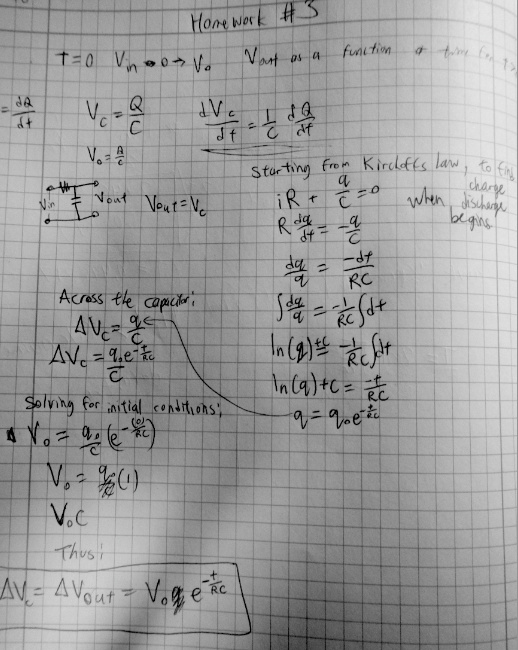 Homework #3
T=0 Vin 0→V₀ Vout as a function of time for t>
= dQ/dt V_c = Q/C dV_c/dt = 1/C dQ/dt
V₀ = Q/C
Vin Vout Vout = V_c
Starting from Kircloffs law, to find
charge
when discharge
begins
iR + q/C = 0
R dq/dt = -q/C
dq/q = -dt/RC
∫dq/q = -1/RC ∫dt
ln(q)+C = -1/RC ∫dt
ln(q)+C = -t/RC
q = q₀e^(-t/RC)
Across the capacitor:
ΔV_c = q/C
ΔV_c = q₀e^(-t/RC)/C
Solving for initial conditions;
V₀ = q₀/C (e^(-(0)/RC))
V₀ = q₀/C (1)
V₀C
Thus;
ΔV_c = ΔVout = V₀ e^(-t/RC)